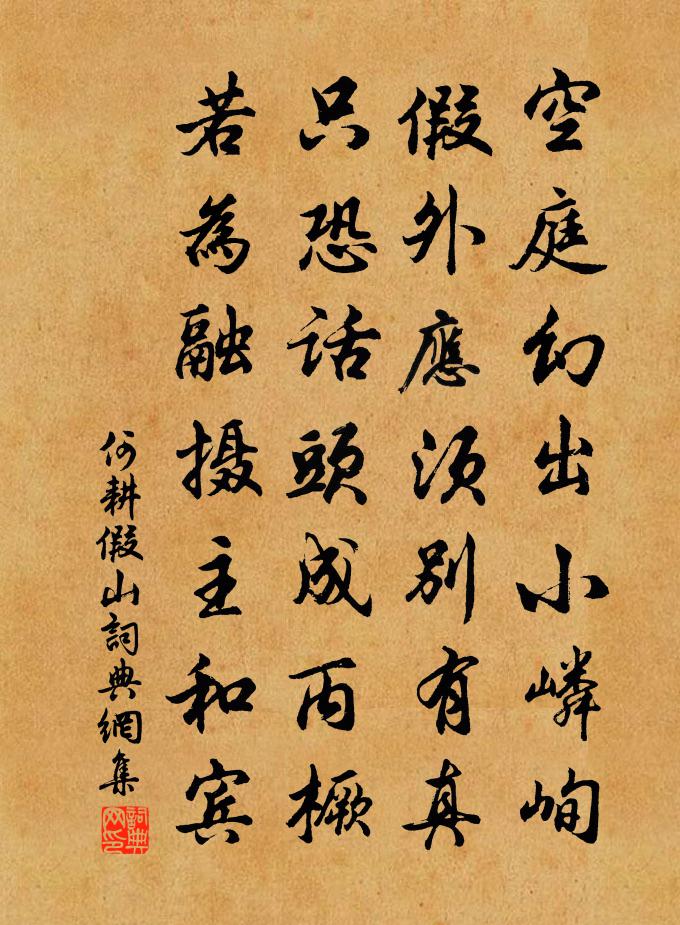 空庭幻出小嶙峋
假外應須別有真
只恐話頭成丙橛
若為融摄主和宾
何耕假山詞典網集
詞典网印